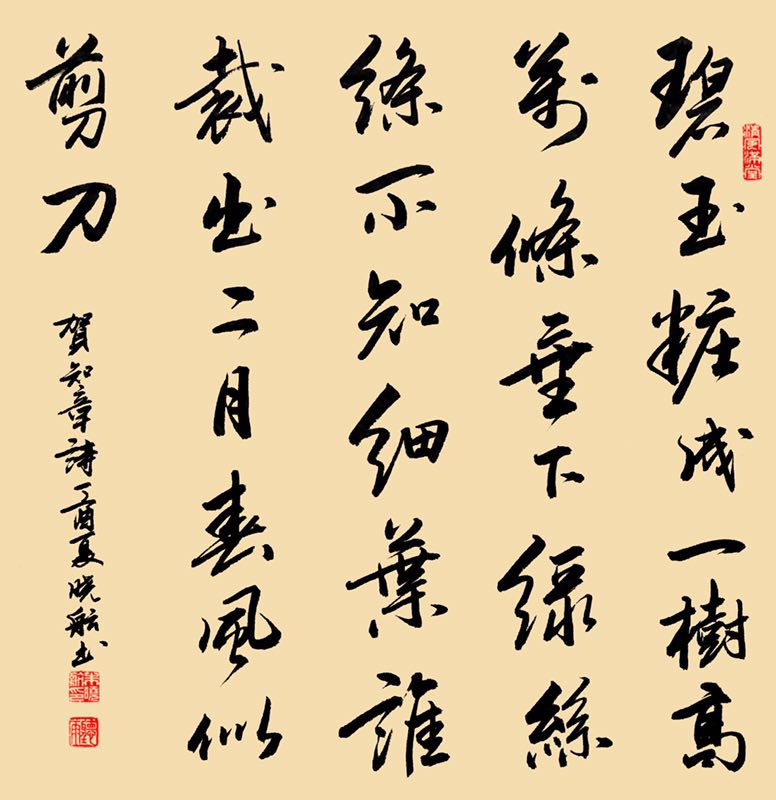 碧玉粧成一樹高
萬條垂下緑絲
絛不知細葉誰
裁出二月春風似
剪刀
賀知章詩丁酉夏晓航书